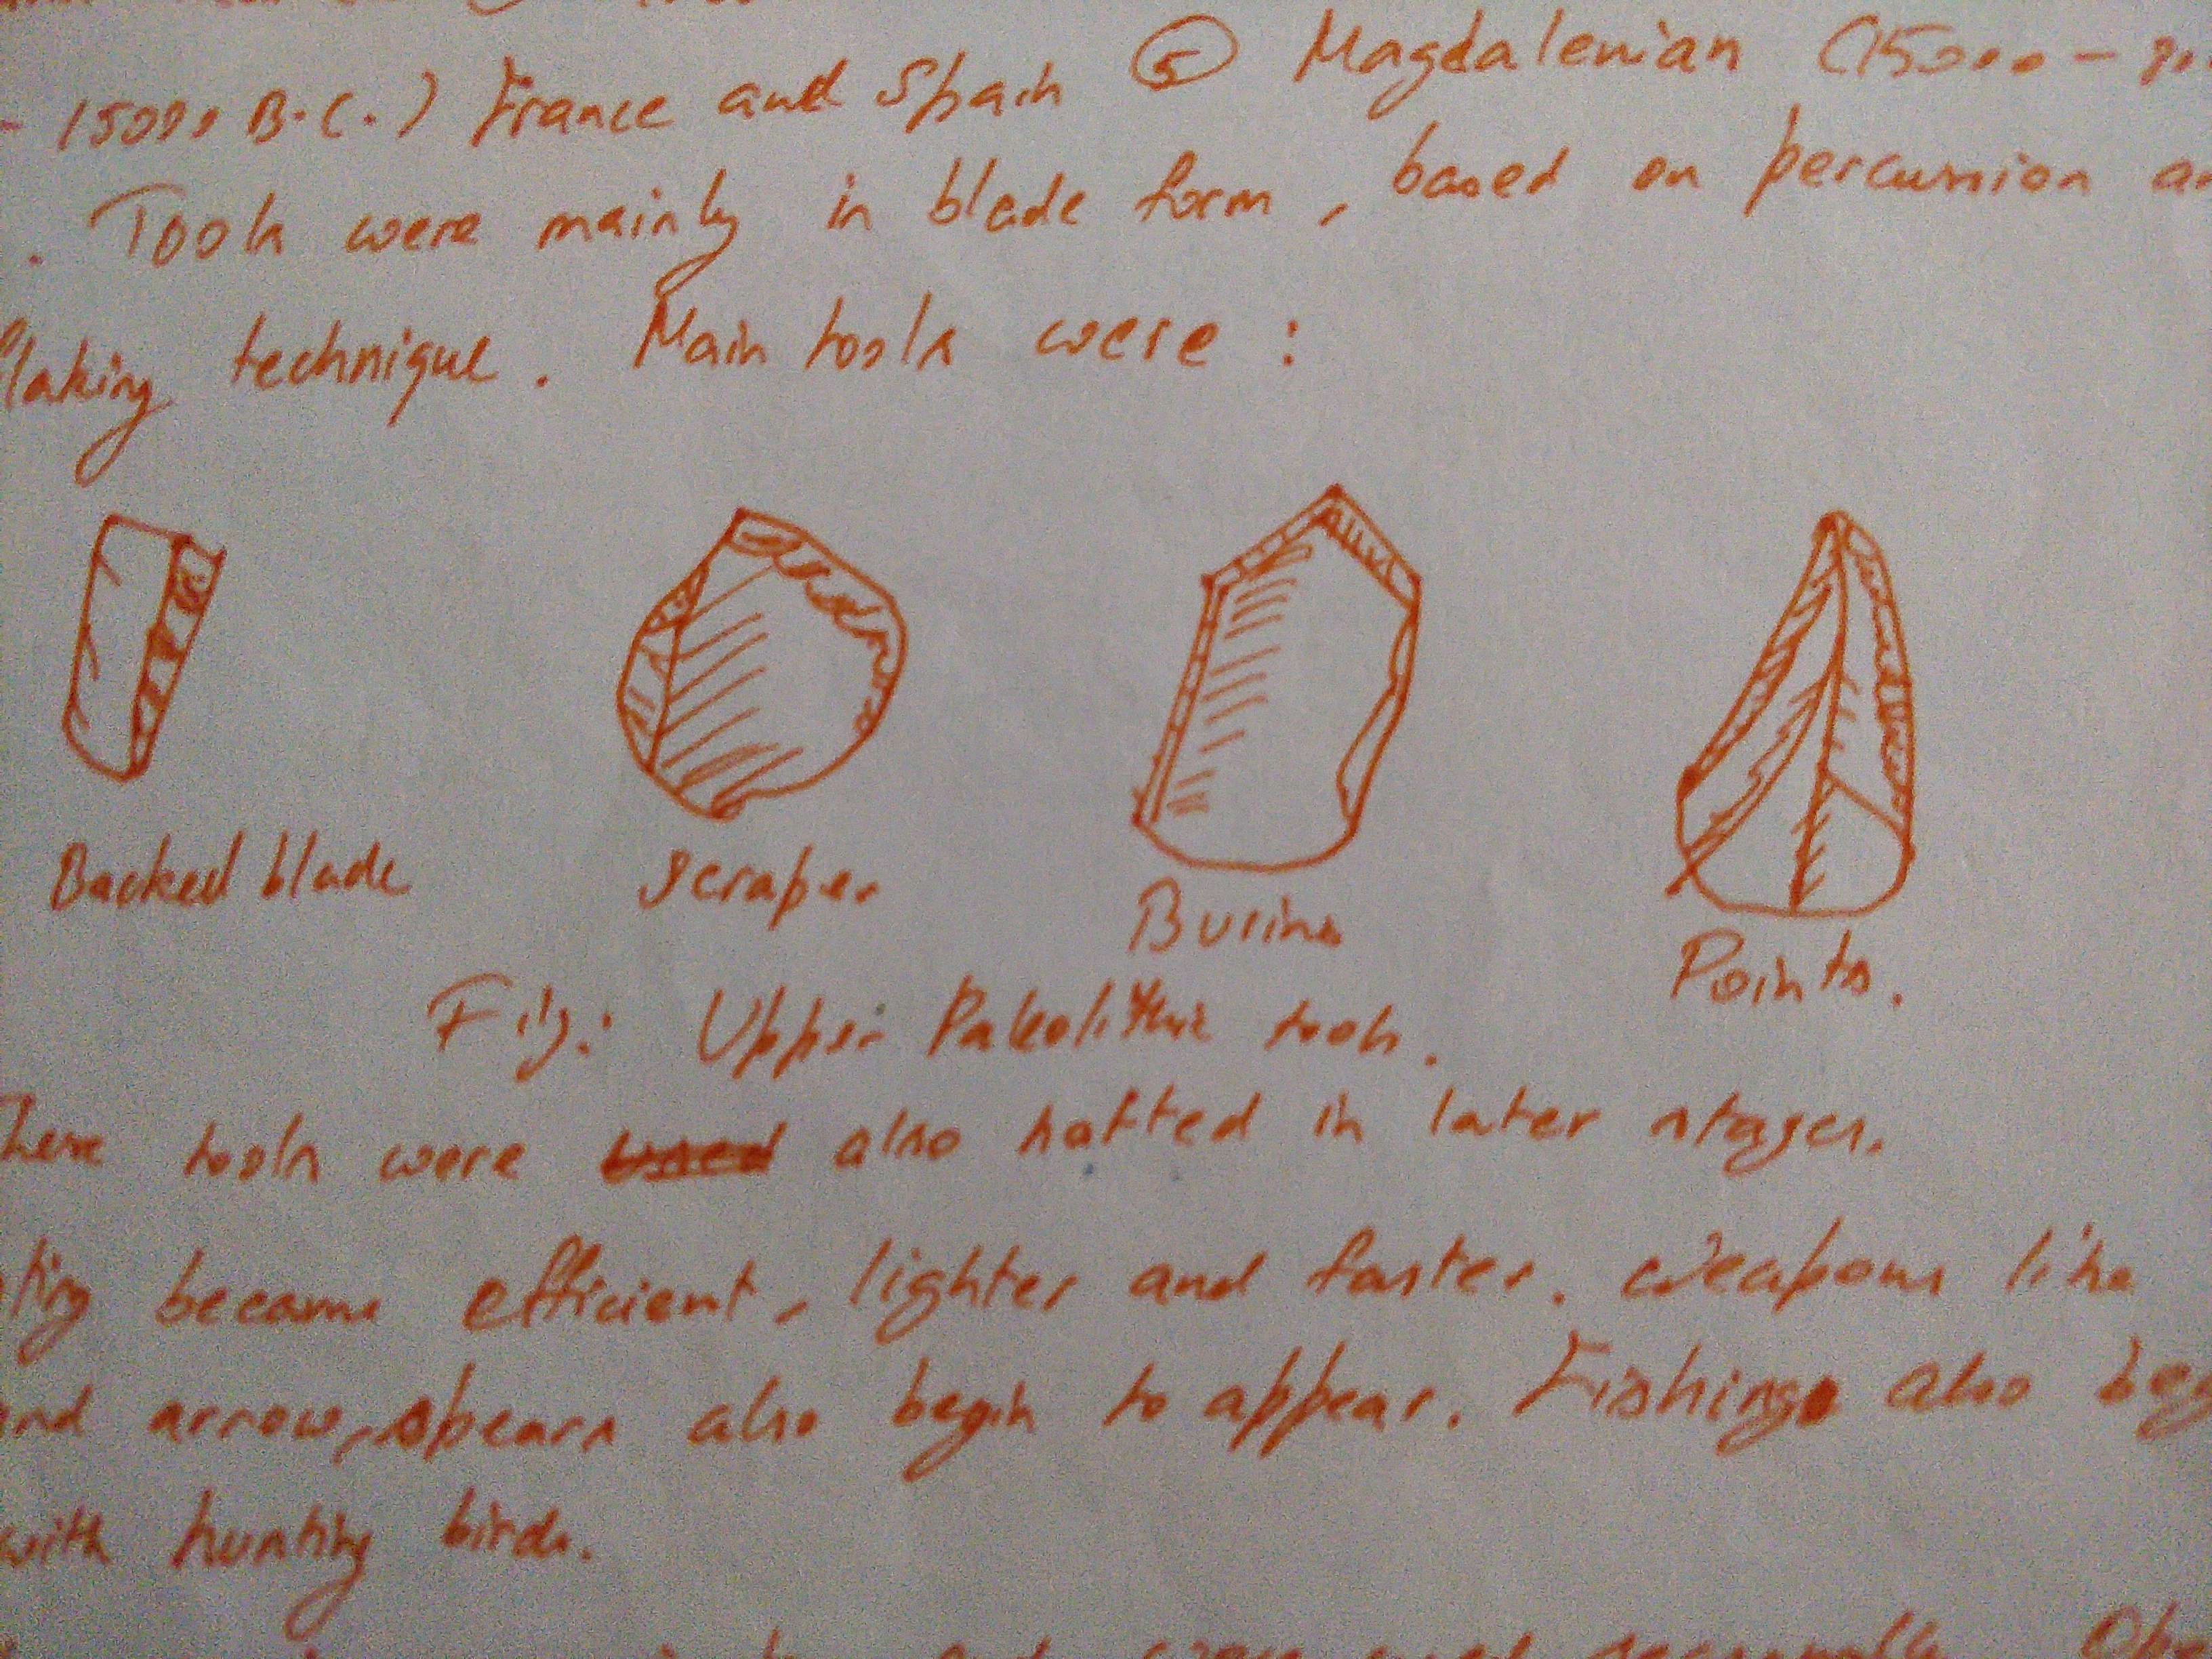 - 15000 B.C.) France and Spain ⑤ Magdalenian (15000 -
. Tools were mainly in blade form, based on percussion
flaking technique. Main tools were :
Backed blade Scraper Burins Points.
Fig.: Upper Paleolithic tools.
These tools were used also hafted in later stages.
became efficient, lighter and faster. Weapons like
and arrow, spears also begin to appear. Fishing also
with hunting birds.